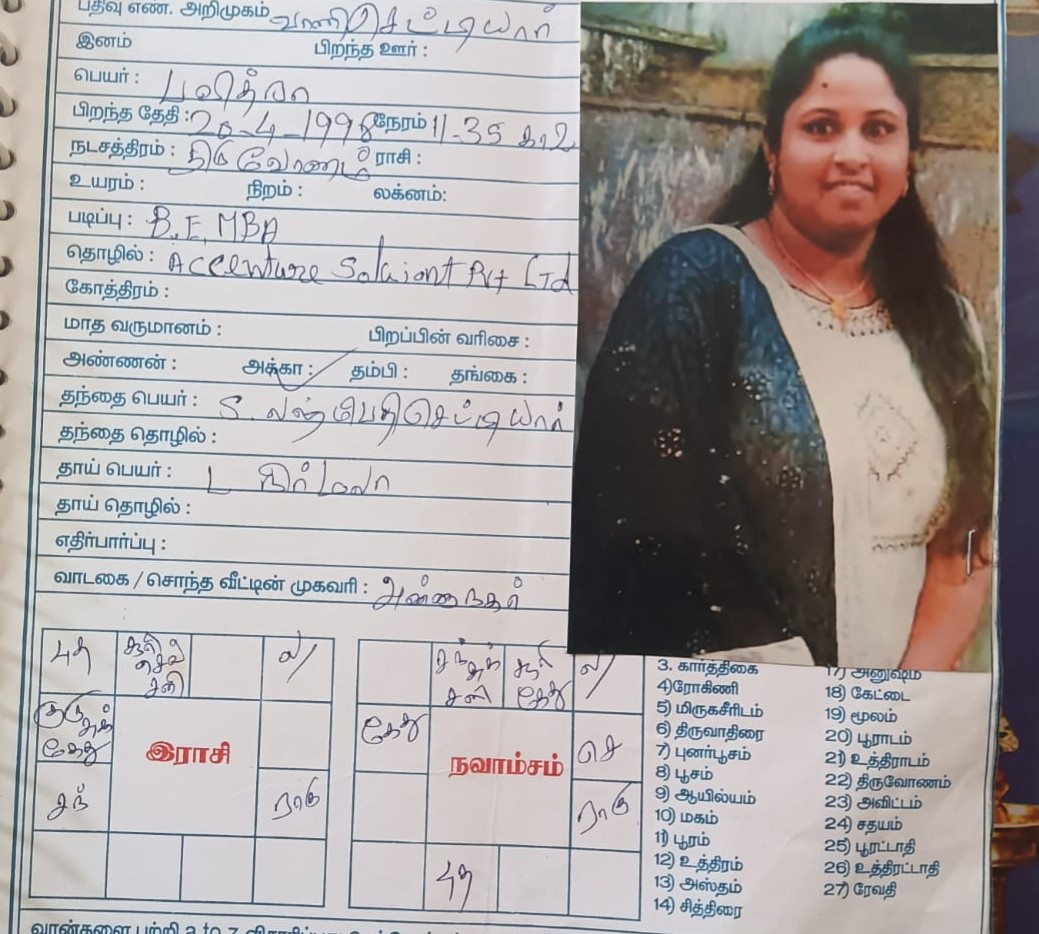 பதிவு எண். அறிமுகம் வாணி செட்டியார்
இனம் பிறந்த ஊர் :
பெயர் : பவித்ரா
பிறந்த தேதி : 20-4-1998 நேரம் 11-35 காலை
நடசத்திரம் : திருவோணம் ராசி :
உயரம் : நிறம் : லக்னம்:
படிப்பு : B.E, MBA
தொழில் : Accenture Solaiont Pvt Ltd
கோத்திரம் :
மாத வருமானம் : பிறப்பின் வரிசை :
அண்ணன் : அக்கா : தம்பி : தங்கை :
தந்தை பெயர் : S. லஷ்மிபதி செட்டியார்
தந்தை தொழில் :
தாய் பெயர் : L நிர்மலா
தாய் தொழில் :
எதிர்பார்ப்பு :
வாடகை / சொந்த வீட்டின் முகவரி : அண்ணாநகர்
புத சூரி செவ் சனி ல/
குரு சுக் கேது
சந் ராகு
இராசி
சந் சுக் சனி சூரி கேது ல/
கேது செ
ராகு
நவாம்சம்
புத
3. கார்த்திகை
4)ரோகிணி
5) மிருகசீரிடம்
6) திருவாதிரை
7) புனர்பூசம்
8) பூசம்
9) ஆயில்யம்
10) மகம்
11) பூரம்
12) உத்திரம்
13) அஸ்தம்
14) சித்திரை
17) அனுஷம்
18) கேட்டை
19) மூலம்
20) பூராடம்
21) உத்திராடம்
22) திருவோணம்
23) அவிட்டம்
24) சதயம்
25) பூரட்டாதி
26) உத்திரட்டாதி
27) ரேவதி
வரன்களை பற்றி a to z